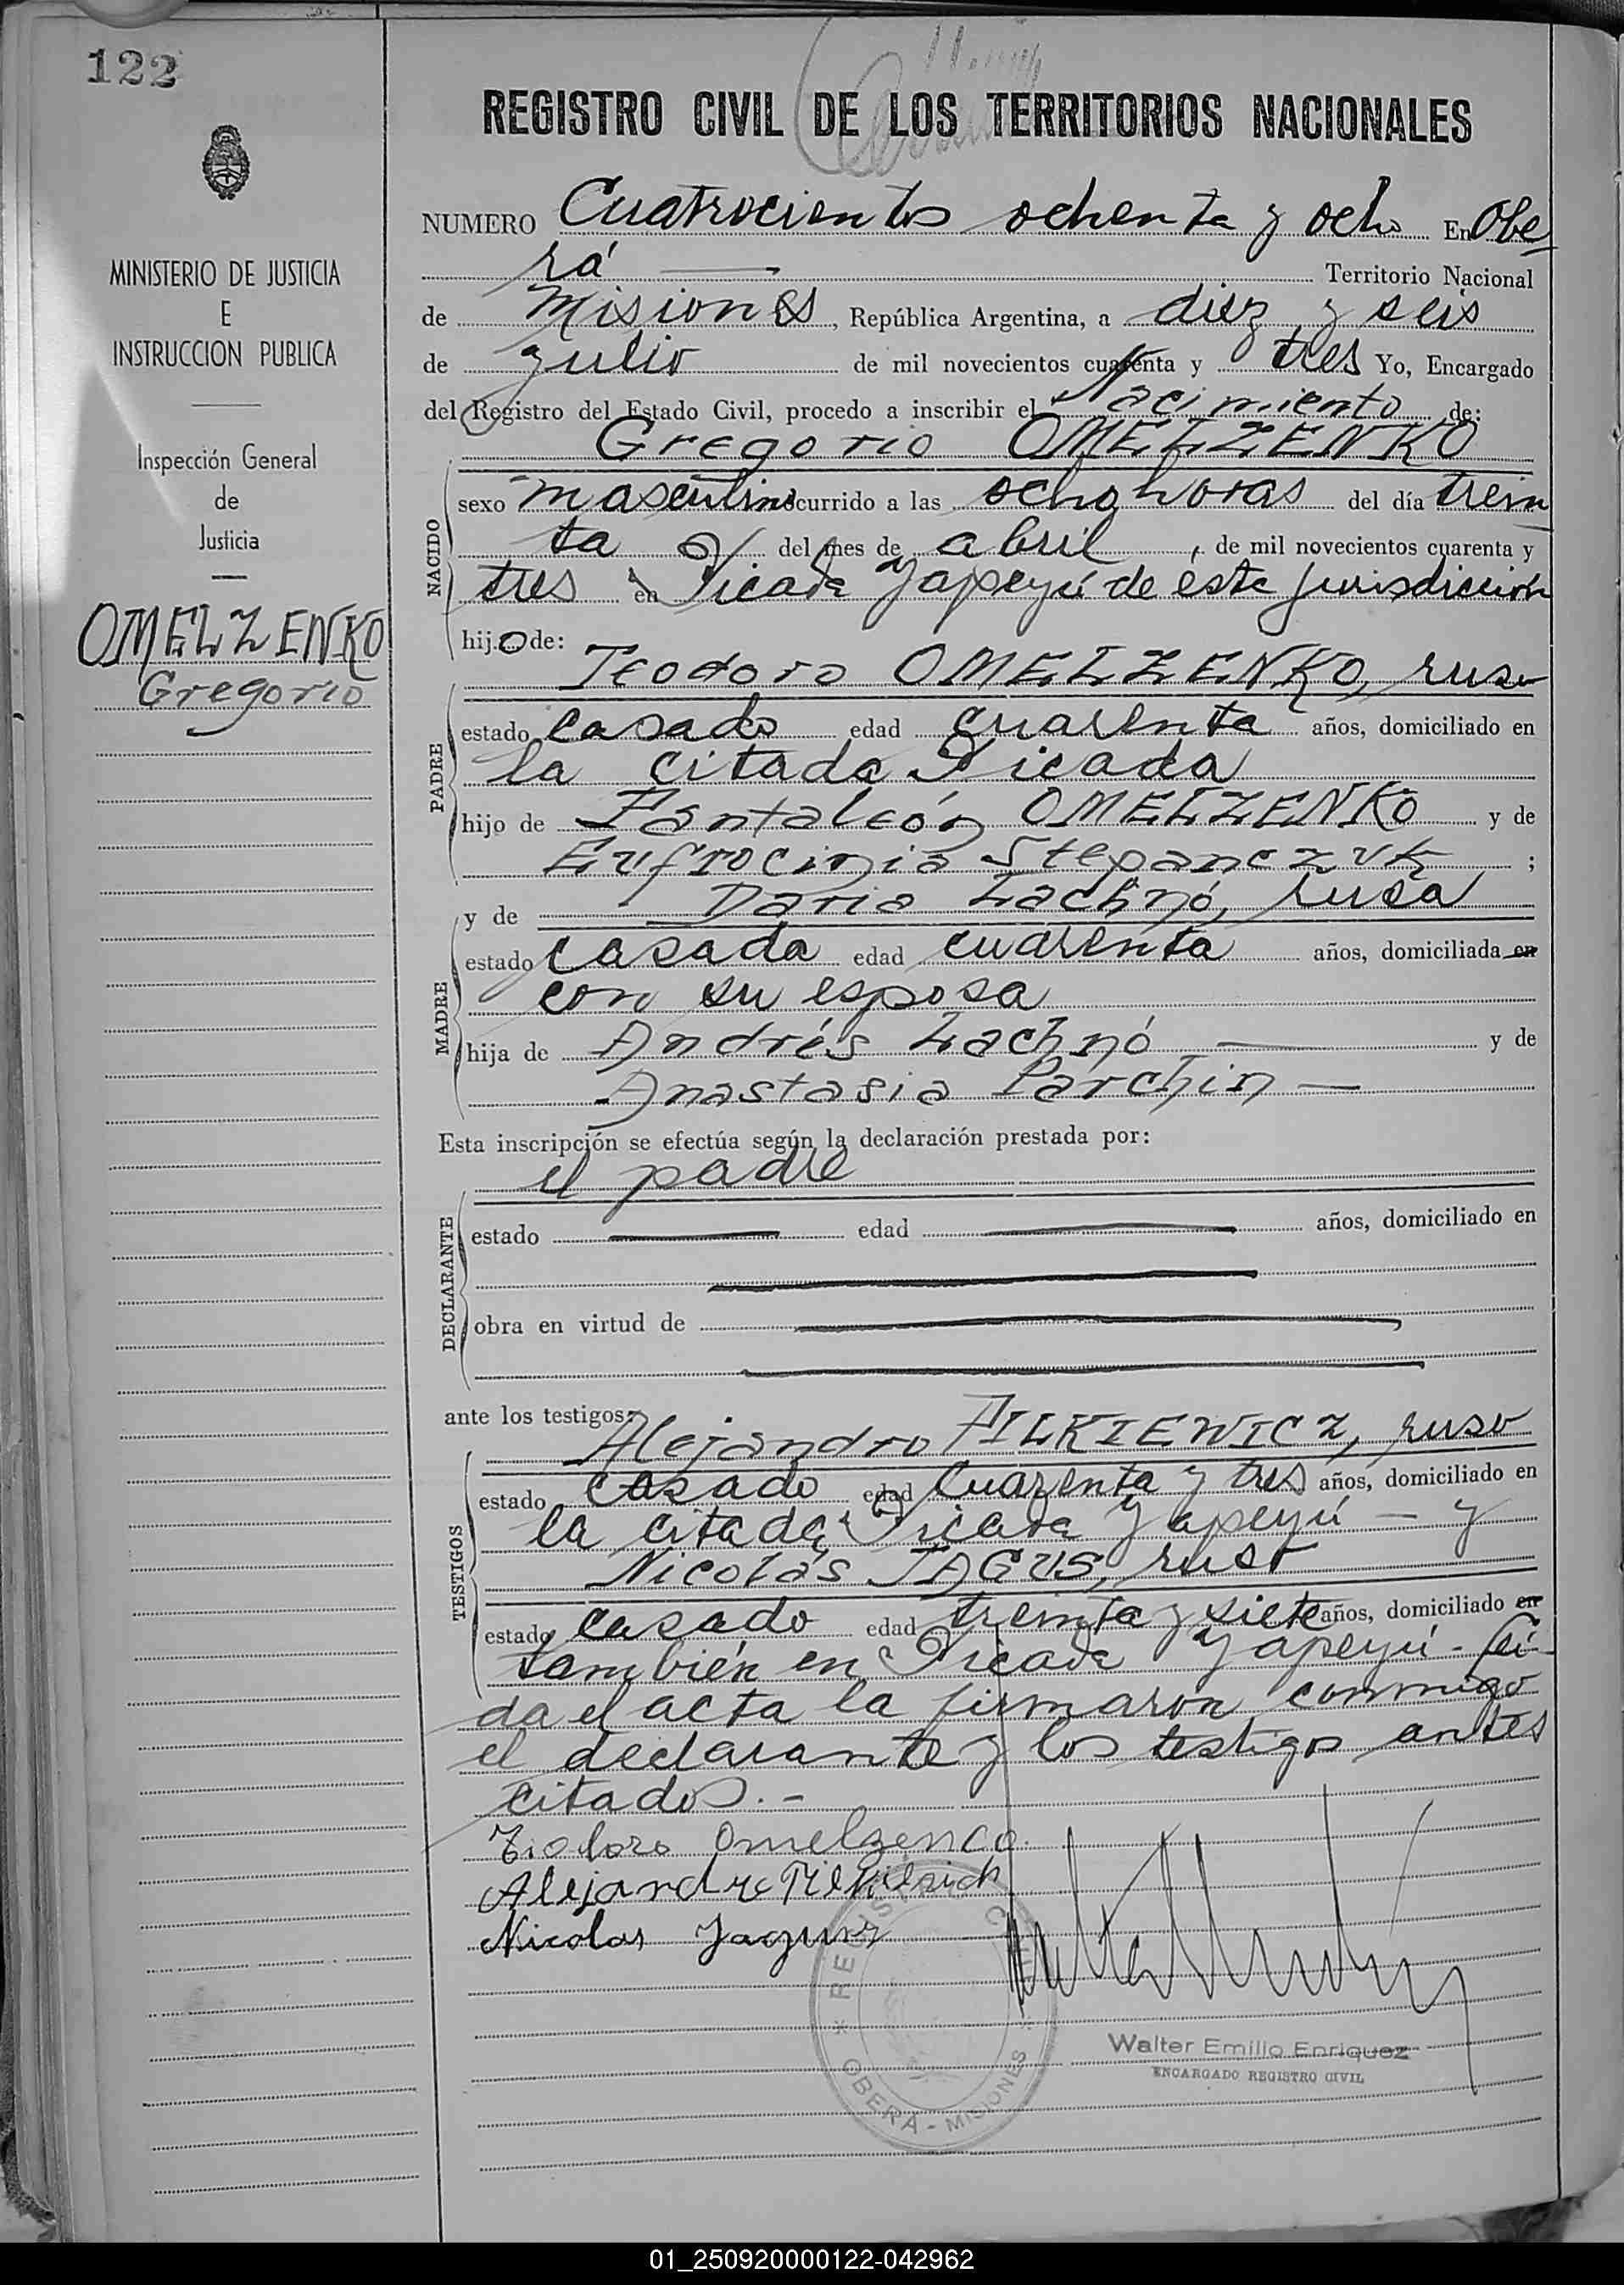 122
REGISTRO CIVIL DE LOS TERRITORIOS NACIONALES
NUMERO Cuatrocientos ochenta y ocho En Obe
rá Territorio Nacional
de Misiones, República Argentina, a diez y seis
de julio de mil novecientos cuarenta y tres Yo, Encargado
del Registro del Estado Civil, procedo a inscribir el Nacimiento de:
Gregorio OMELZENKO
sexo masculino ocurrido a las ocho horas del día trein
ta del mes de abril, de mil novecientos cuarenta y
tres en Picada Yapeyú de esta jurisdicción
hijo de:
NACIDO
Teodoro OMELZENKO, ruso
estado casado edad cuarenta años, domiciliado en
la citada Picada
hijo de Pantaleón OMELZENKO y de
Eufrocinia Stepanczuk ;
PADRE
y de Daria Lachnó, rusa
estado casada edad cuarenta años, domiciliada en
con su esposa
hija de Andrés Lachnó — y de
Anastasia Parchin —
MADRE
Esta inscripción se efectúa según la declaración prestada por:
el padre
estado edad años, domiciliado en
obra en virtud de
DECLARANTE
ante los testigos:
Alejandro PILKIEWICZ, ruso
estado casado edad cuarenta y tres años, domiciliado en
la citada Picada Yapeyú — y
Nicolás JAGUS, ruso
estado casado edad treinta y siete años, domiciliado en
también en Picada Yapeyú - Leí-
TESTIGOS
da el acta la firmaron conmigo
el declarante y los testigos antes
citados.-
Tiodoro Omelzenco
Alejandro
Nicolas
REGISTRO CIVIL
* OBERA - MISIONES *
Walter Emilio Enriquez
ENCARGADO REGISTRO CIVIL
MINISTERIO DE JUSTICIA
E
INSTRUCCION PUBLICA
Inspección General
de
Justicia
OMELZENKO
Gregorio
01_250920000122-042962